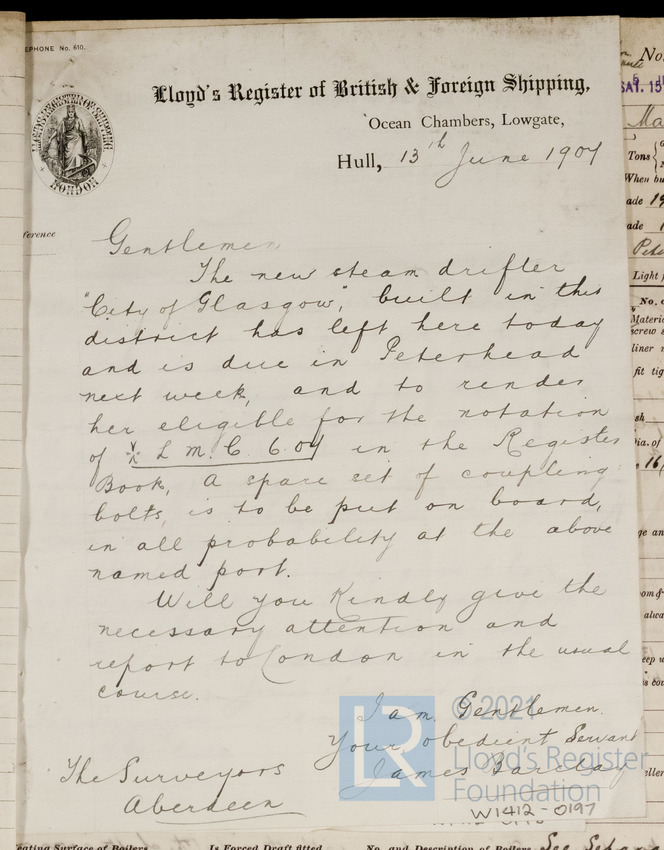 EPHONE No. 610.
Lloyd's Register of British & Foreign Shipping,
Ocean Chambers, Lowgate,
Hull, 13th June 1907
LLOYD'S REGISTER OF SHIPPING
LONDON
ference
Gentlemen
The new steam drifter
"City of Glasgow", built in this
district has left here today
and is due in Peterhead
next week, and to render
her eligible for the notation
of L M C 6.07 in the Register
Book, A spare set of coupling
bolts, is to be put on board,
in all probability at the above
named port.
Will you Kindly give the
necessary attention and
report to London in the usual
course.
I am, Gentlemen.
Your obedient Servant
James Barclay
The Surveyors
Aberdeen
LR
© 2021
Lloyd's Register
Foundation
W1412-0197
No.
SAT. 15
Ma
Tons
When bu
ade 19
ade 1
Pete
Light
No. o
Materia
screw s
liner
fit tig
sh
Dia. of
16
ge an
om
alwa
eep u
is cov
eller
eating Surface of Boilers
Is Forced Draft fitted
No. and Description of Boilers